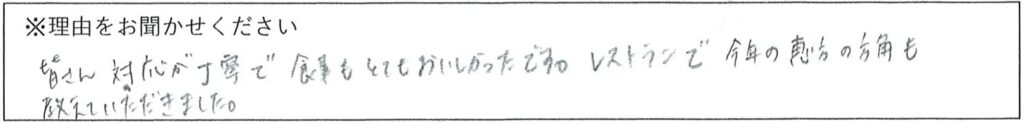 ※理由をお聞かせください
皆さん 対応が丁寧で 食事も とてもおいしかったです。 レストランで 今年の恵方の方角も
教えていただきました。